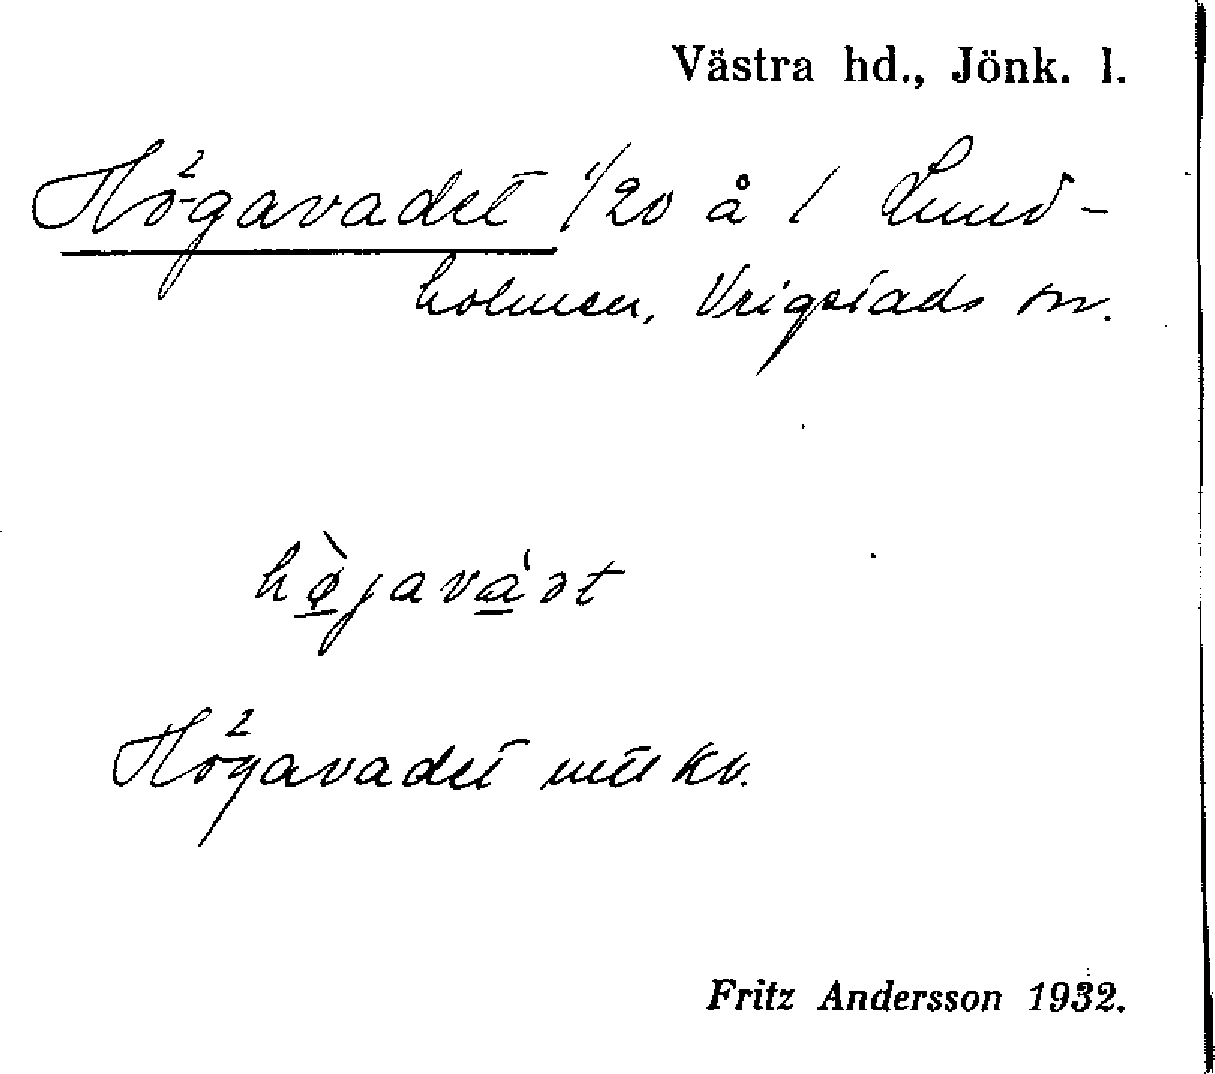 Västra hd., Jönk. l.
Högavadet 1/20 å 1 Lund-
holmen, Vrigstads sn.
hø̀javáət
Högavadet utt kv.
Fritz Andersson 1932.